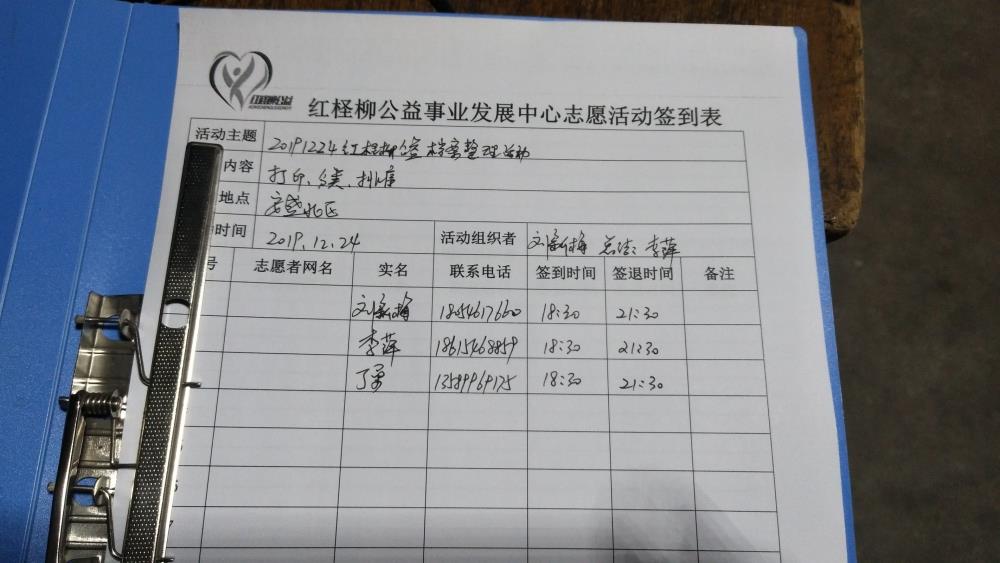 红柽柳公益事业发展中心志愿活动签到表
活动主题 20191224红柽柳公益档案整理活动
内容 打印、分类、排序
地点 安盛北区
时间 2019.12.24 活动组织者 刘新梅 总结：李萍
号 志愿者网名 实名 联系电话 签到时间 签退时间 备注
刘新梅 18:30 21:30
李萍 18615468859 18:30 21:30
丁勇 13589969175 18:30 21:30